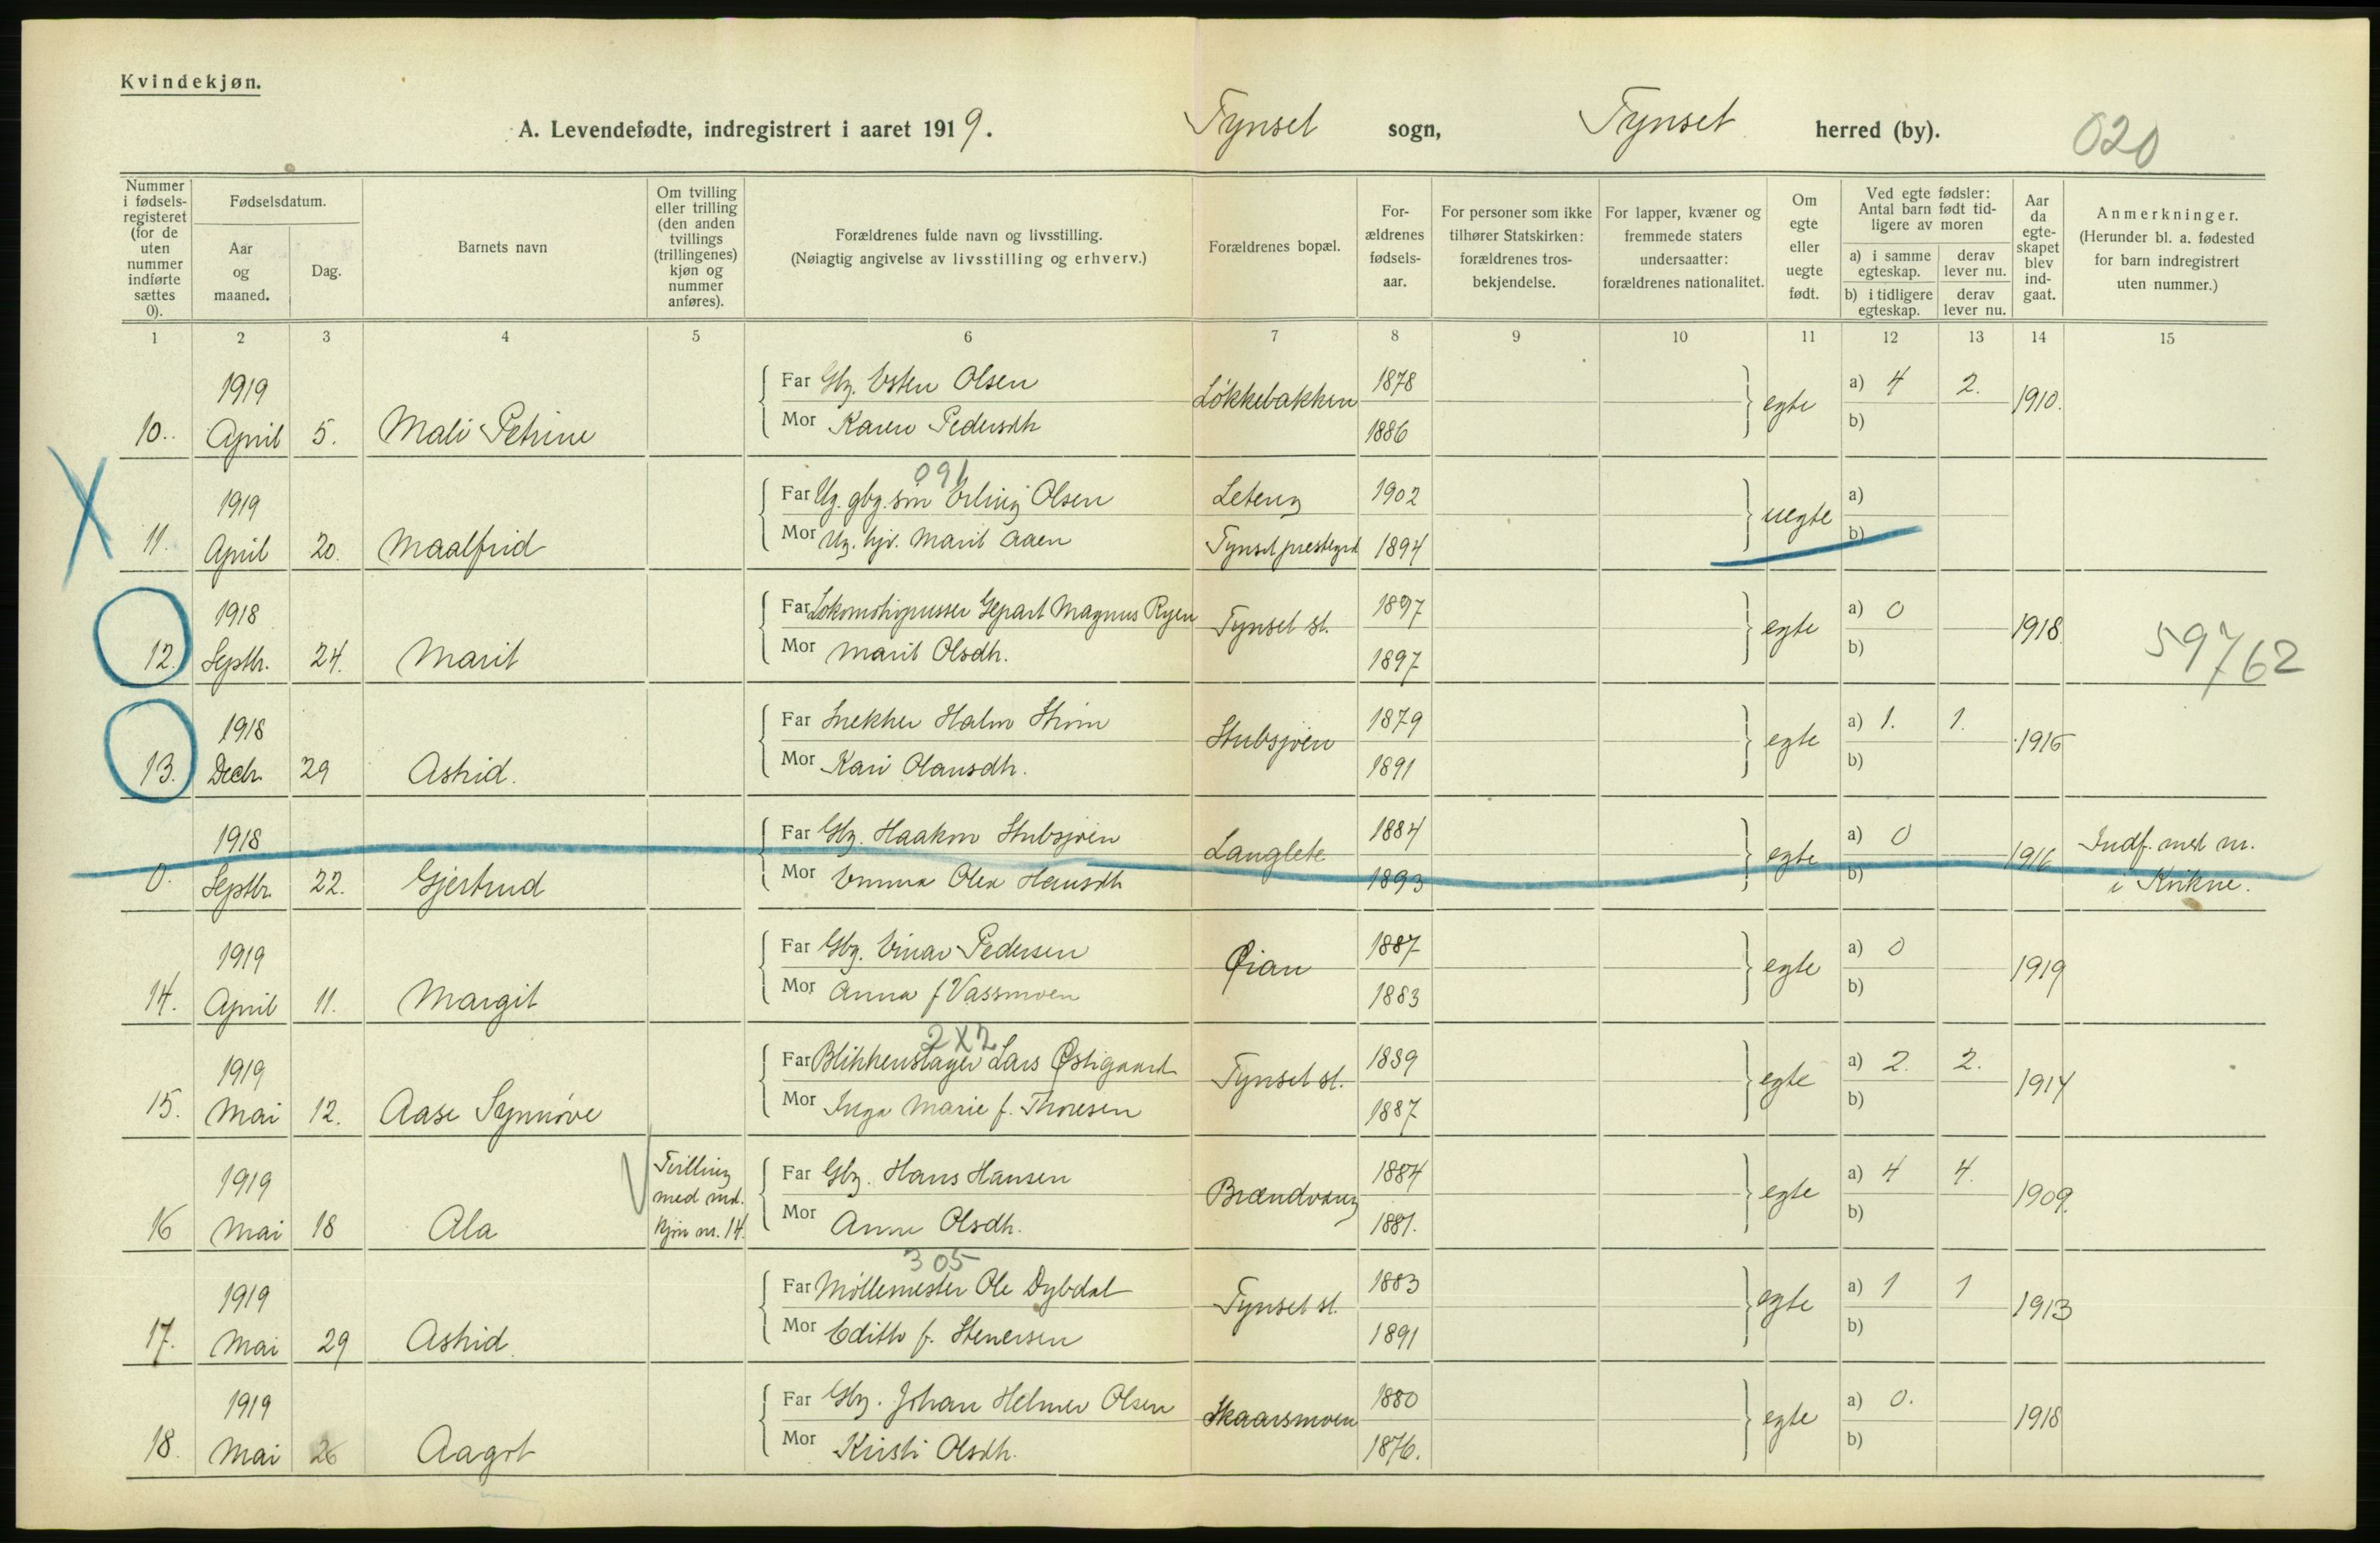 Kvindekjøn.
A. Levendefødte, indregistrert i aaret 1919.
Tynset sogn, Tynset herred (by). 020
Nummer i fødselsregisteret (for de uten nummer indførte sættes 0).
Fødselsdatum.
Aar og maaned.
Dag.
Barnets navn
Om tvilling eller trilling (den anden tvillings (trillingenes) kjøn og nummer anføres).
Forældrenes fulde navn og livsstilling.
(Nøiagtig angivelse av livsstilling og erhverv.)
Forældrenes bopæl.
Forældrenes fødselsaar.
For personer som ikke tilhører Statskirken: forældrenes trosbekjendelse.
For lapper, kvæner og fremmede staters undersaatter: forældrenes nationalitet.
Om egte eller uegte født.
Ved egte fødsler: Antal barn født tidligere av moren
a) i samme egteskap.
derav lever nu.
b) i tidligere egteskap.
derav lever nu.
Aar da egteskapet blev indgaat.
Anmerkninger.
(Herunder bl. a. fødested for barn indregistrert uten nummer.)
1 2 3 4 5 6 7 8 9 10 11 12 13 14 15
1919 Far Gbr. Esten Olsen Løkkebakken 1878 egte a) 4 2. 1910.
10. April 5. Mali Petrine Mor Karen Pedersdh 1886 b)
091
1919 Far Ug. gbr. søn Erling Olsen Leteng 1902 uegte a)
11. April 20. Maalfrid Mor Ug. hjv. Marit Aaen Tynset prestegrd 1894 b)
1918 Far Lokomotivpusser Gepart Magnus Ryen Tynset st. 1897 egte a) 0 1918.
12. Septbr. 24. Marit Mor Marit Olsdh. 1897 b) 59762
1918 Far Snekker Halvor Strøm Stubsjøen 1879 egte a) 1. 1. 1916
13. Decbr. 29 Astrid. Mor Kari Olausdh. 1891 b)
1918 Far Gbr. Haakon Stubsjøen Langlete 1884 egte a) 0 1916 Indf. med nr.
0. Septbr. 22. Gjertrud Mor Emma Olea Hansdh 1893 b) i Kvikne.
1919 Far Gbr. Einar Pedersen Øian 1887 egte a) 0 1919
14. April 11. Margit Mor Anna f. Vassmoen 1883 b)
2X2
1919 Far Blikkenslager Lars Østigaard Tynset st. 1889 egte a) 2. 2. 1914
15. Mai 12. Aase Synnøve Mor Inga Marie f. Thoresen 1887 b)
Tvilling
1919 med md. Far Gbr. Hans Hansen Brændvang 1884 egte a) 4 4. 1909.
16 Mai 18 Ala kjøn nr. 14. Mor Anne Olsdh. 1881. b)
305
1919 Far Møllemester Ole Dybdal Tynset st. 1883 egte a) 1 1 1913
17. Mai 29 Astrid. Mor Edith f. Stenersen 1891 b)
1919 Far Gbr. Johan Helmer Olsen Skaarsmoen 1880 egte a) 0. 1918
18. Mai 26 Aagot Mor Kirsti Olsdh. 1876. b)